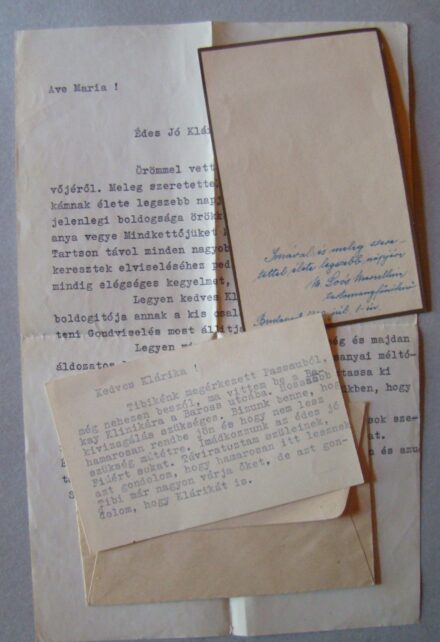 Ave Maria !
Édes Jó Klári
Örömmel vett
vőjéről. Meleg szeretette
kámnak élete legszebb nap
jelenlegi boldogsága örökk
anya vegye Mindkettőjüket
Tartson távol minden nagyob
keresztek elviseléséhez ped
mindig elégséges kegyelmet,
Legyen kedves Kl
boldogitója annak a kis csalá
teni Gondviselés most állitja
Legyen
ég és majdan
áldozatos
anyai méltó-
tassa ki
ikben, hogy
sok sze-
at.
a és azu
Imával és meleg szere-
tettel élete legszebb napján
M.
Budapest
Kedves Klárika !
Tibikénk megérkezett Passauból,
még nehezen beszél, ma vittem be a Ba-
kay Klinikára a Baross utcába. Hosszabb
kivizsgálás szükséges. Bizunk benne, hogy
hamarosan rendbe jön és hogy nem lesz
szükség műtétre. Imádkozzunk az édes jó
Fiért sokat. Táviratoztam szüleinek,
azt gondolom, hogy hamarosan itt lesznek
Tibi már nagyon várja őket, de azt gon-
dolom, hogy Klárikát is.